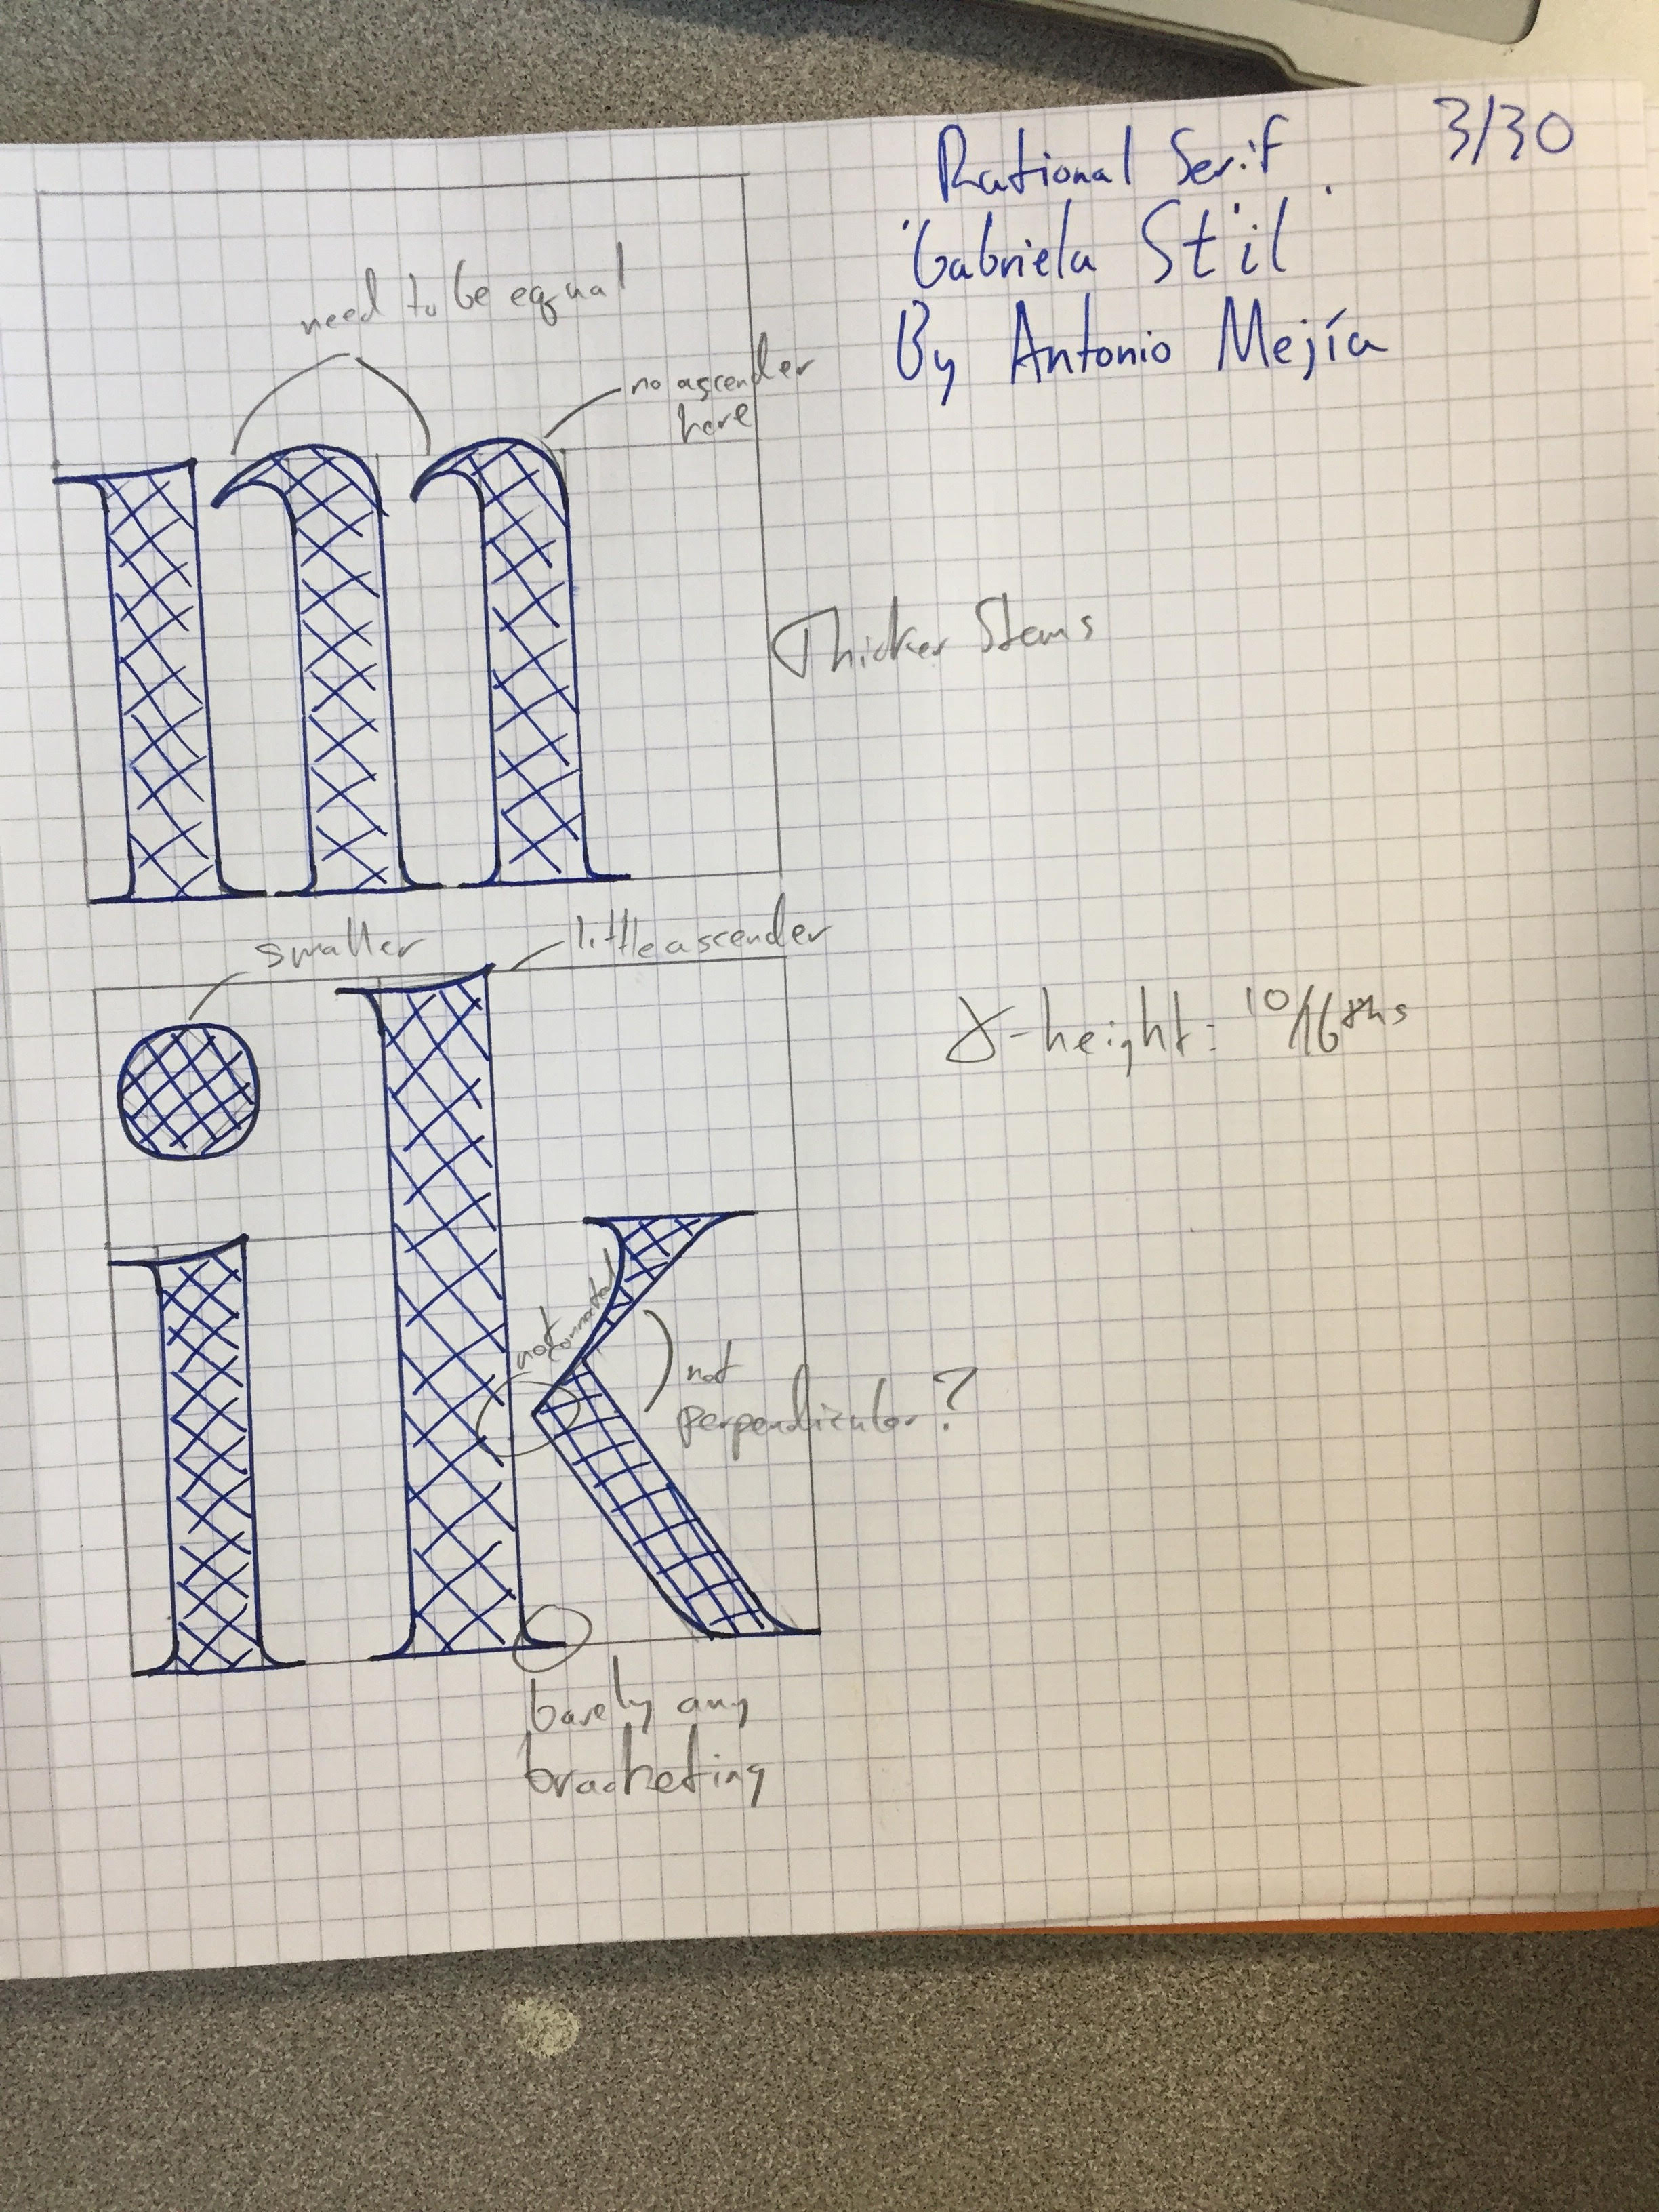 3/30
Rational Serif
"Gabriela Stil"
By Antonio Mejía
need to be equal
no ascender
here
m
Thicker Stems
smaller
little ascender
x-height: 10/16ths
ik
not
connected
not
perpendicular?
barely any
bracketing